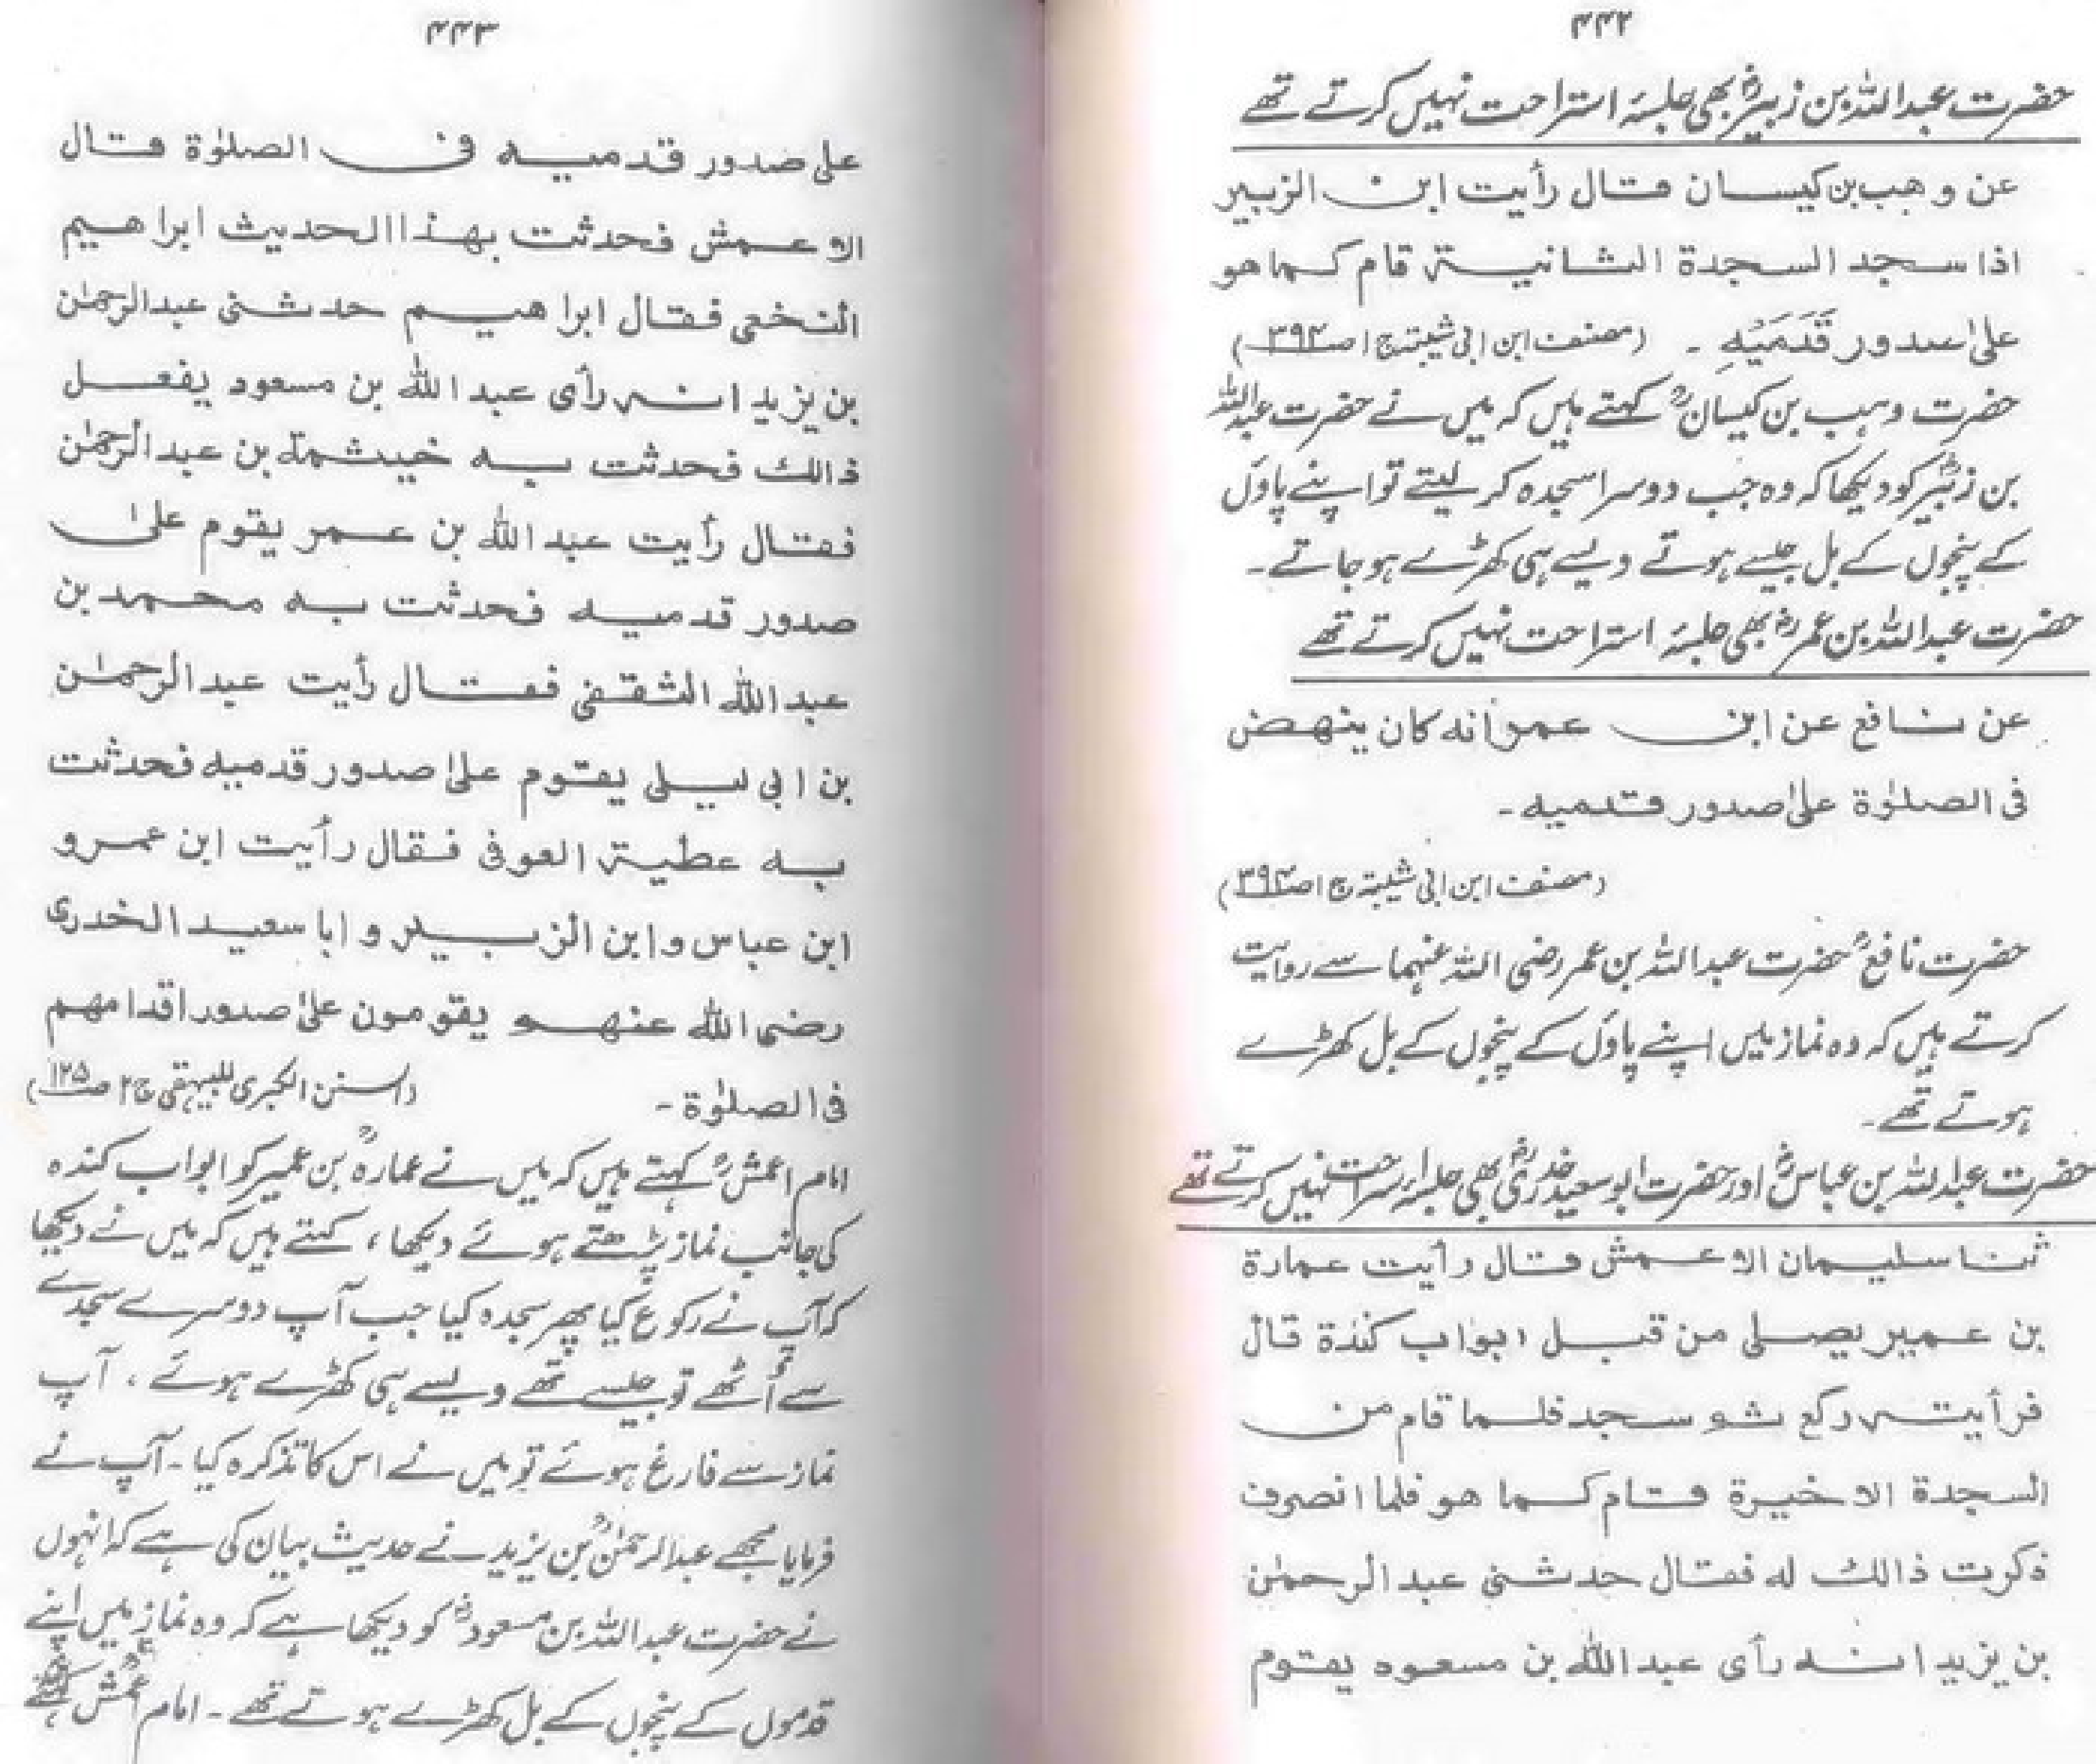 ۴۴۲
حضرت عبداللہ بن زبیرؓ بھی جلسۂ استراحت نہیں کرتے تھے
عن وهب بن كيسان قال رأيت ابن الزبير
اذا سجد السجدة الثانية قام كما هو
علیٰ صدور قَدَمَيْهِ ۔ (مصنف ابن ابی شیبۃ ج ۱ ص ۳۹۴)
حضرت وہب بن کیسانؒ کہتے ہیں کہ میں نے حضرت عبداللہ
بن زبیرؓ کو دیکھا کہ وہ جب دوسرا سجدہ کر لیتے تو اپنے پاؤں
کے پنجوں کے بل جیسے ہوتے ویسے ہی کھڑے ہو جاتے۔
حضرت عبداللہ بن عمرؓ بھی جلسۂ استراحت نہیں کرتے تھے
عن نافع عن ابن عمر أنه كان ينهض
فی الصلوٰة علیٰ صدور قدميه ۔
(مصنف ابن ابی شیبۃ ج ۱ ص ۳۹۴)
حضرت نافعؒ حضرت عبداللہ بن عمر رضی اللہ عنہما سے روایت
کرتے ہیں کہ وہ نماز میں اپنے پاؤں کے پنجوں کے بل کھڑے
ہوتے تھے۔
حضرت عبداللہ بن عباسؓ اور حضرت ابو سعید خدریؓ بھی جلسۂ استراحت نہیں کرتے تھے
ثنا سليمان الاعمش قال رأيت عمارة
بن عمير يصلی من قبل ابواب كندة قال
فرأيته ركع ثم سجد فلما قام من
السجدة الاخيرة قام كما هو فلما انصرف
ذكرت ذالك له فقال حدثنی عبد الرحمٰن
بن يزيد انه رأی عبد اللہ بن مسعود يقوم
۴۴۳
علیٰ صدور قدميه فی الصلوٰة قال
الاعمش فحدثت بهذا الحديث ابراهيم
النخعی فقال ابراهيم حدثنی عبد الرحمٰن
بن يزيد انه رأى عبد اللہ بن مسعود يفعل
ذالك فحدثت به خيثمة بن عبد الرحمٰن
فقال رأيت عبد اللہ بن عمر يقوم علیٰ
صدور قدميه فحدثت به محمد بن
عبد اللہ الثقفی فقال رأيت عبد الرحمٰن
بن ابی ليلی يقوم علیٰ صدور قدميه فحدثت
به عطية العوفی فقال رأيت ابن عمر و
ابن عباس و ابن الزبير و ابا سعيد الخدری
رضی اللہ عنهم يقومون علیٰ صدور اقدامهم
فی الصلوٰة ۔ (السنن الكبری للبيہقی ج ۲ ص ۱۲۵)
امام اعمشؒ کہتے ہیں کہ میں نے عمارہؒ بن عمیر کو ابواب کندہ
کی جانب نماز پڑھتے ہوئے دیکھا، کہتے ہیں کہ میں نے دیکھا
کہ آپ نے رکوع کیا پھر سجدہ کیا جب آپ دوسرے سجدے
سے اُٹھے تو جیسے تھے ویسے ہی کھڑے ہوئے، آپ
نماز سے فارغ ہوئے تو میں نے اس کا تذکرہ کیا۔ آپ نے
فرمایا مجھے عبدالرحمٰنؒ بن یزید نے حدیث بیان کی ہے کہ انہوں
نے حضرت عبداللہ بن مسعودؓ کو دیکھا ہے کہ وہ نماز میں اپنے
قدموں کے پنجوں کے بل کھڑے ہوتے تھے۔ امام اعمشؒ کہتے